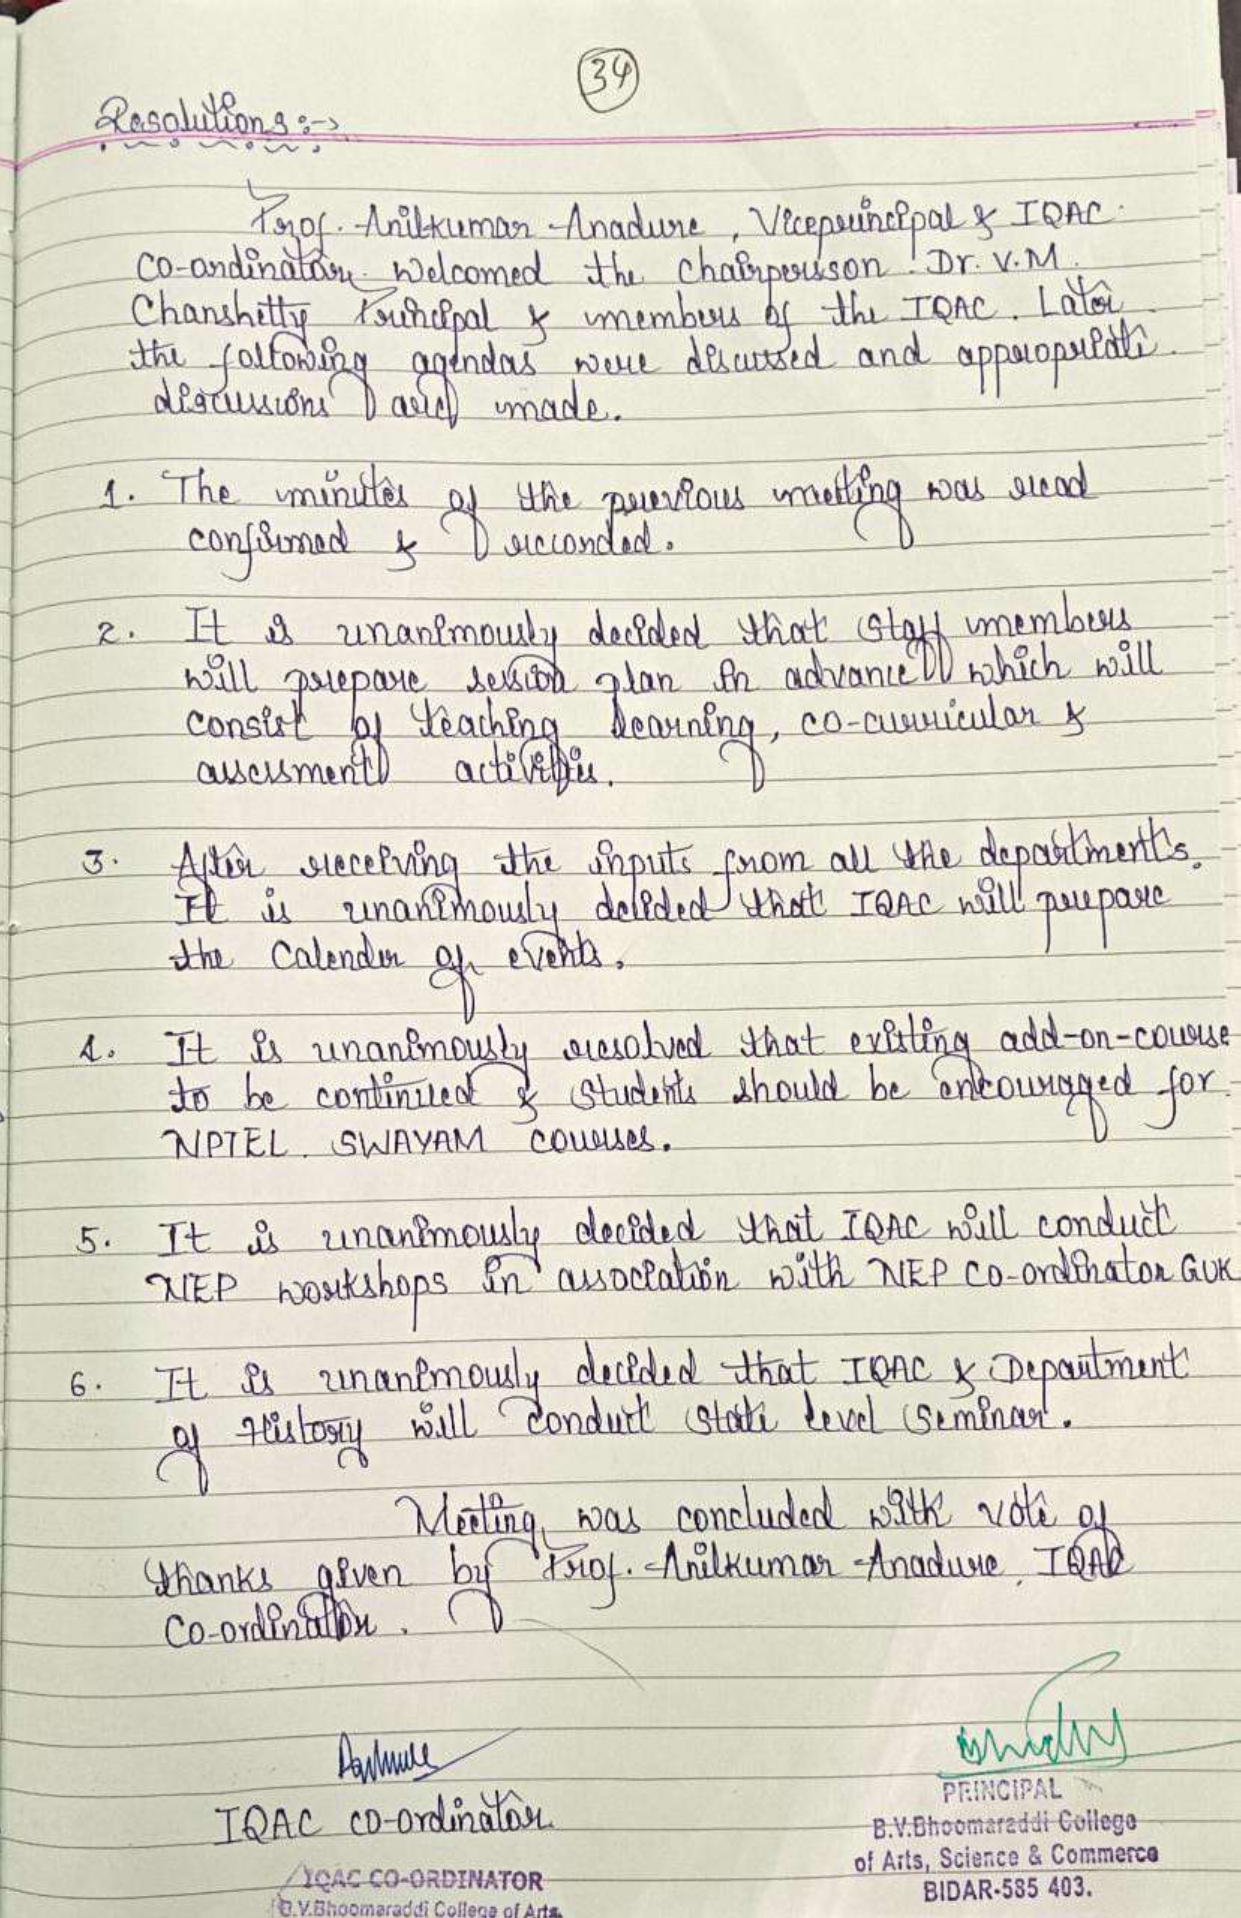 34
Resolutions :->
Prof. Anilkumar Anadure, Viceprincipal & IQAC
Co-ordinator welcomed the chairperson Dr. V.M.
Chanshetty Principal & members of the IQAC. Later
the following agendas were discussed and appropriate
discussions are made.
1. The minutes of the previous meeting was read
confirmed & recorded.
2. It is unanimously decided that staff members
will prepare session plan in advance which will
consist of teaching learning, co-curricular &
assessment activities.
3. After receiving the inputs from all the departments.
It is unanimously decided that IQAC will prepare
the Calender of events.
4. It is unanimously resolved that existing add-on-course
to be continued & students should be encouraged for
NPTEL. SWAYAM courses.
5. It is unanimously decided that IQAC will conduct
NEP workshops in association with NEP Co-ordinator GUK
6. It is unanimously decided that IQAC & Department
of History will conduct state level seminar.
Meeting was concluded with vote of
thanks given by Prof. Anilkumar Anadure, IQAC
Co-ordinator.
IQAC co-ordinator
IQAC CO-ORDINATOR
B.V.Bhoomaraddi College of Arts,
PRINCIPAL
B.V.Bhoomaraddi College
of Arts, Science & Commerce
BIDAR-585 403.